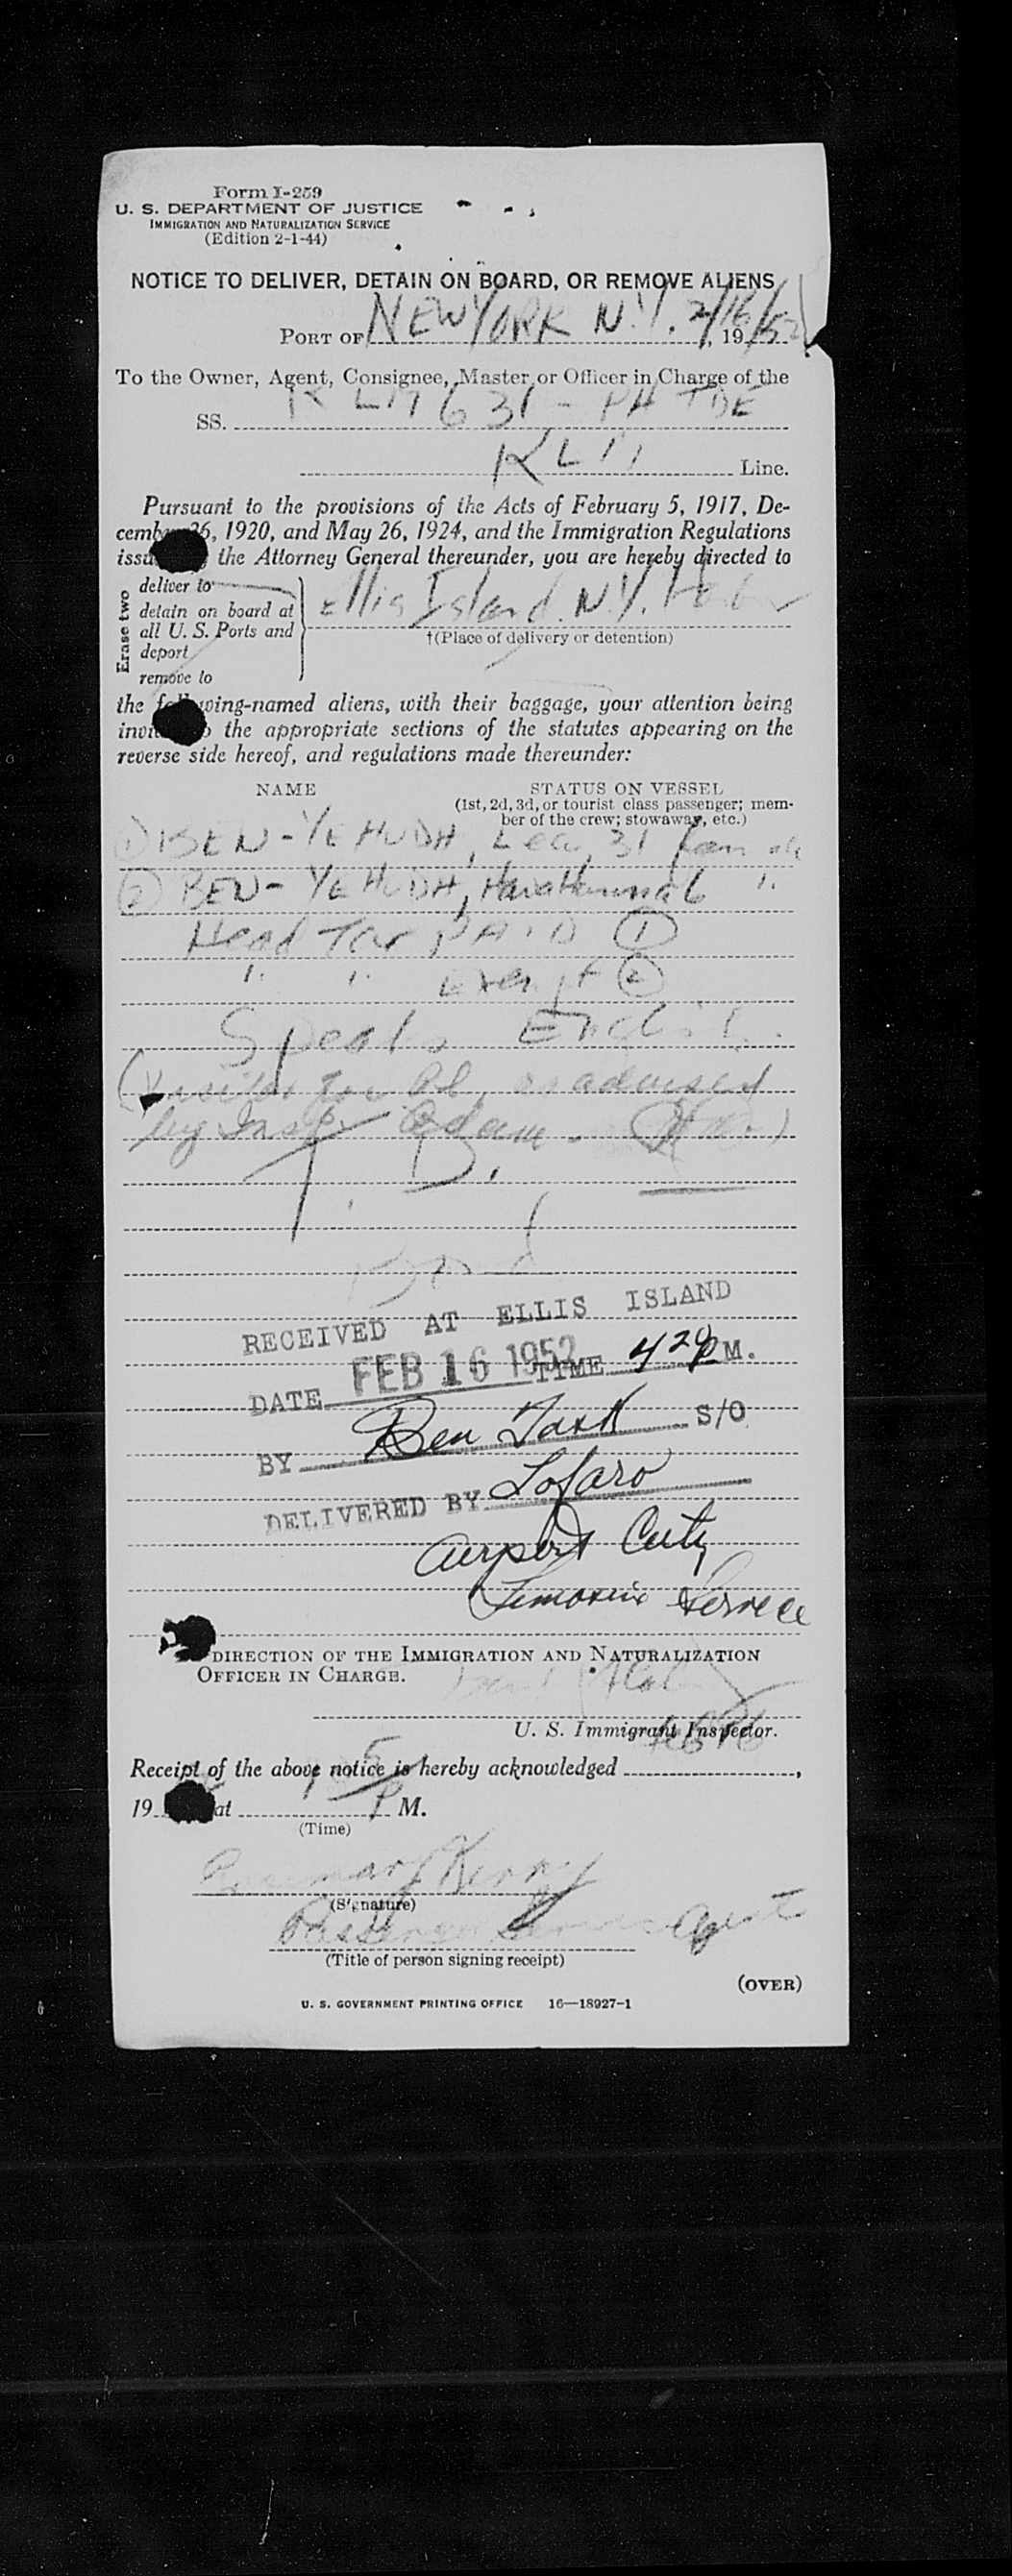 Form I-259
U. S. DEPARTMENT OF JUSTICE
IMMIGRATION AND NATURALIZATION SERVICE
(Edition 2-1-44)
NOTICE TO DELIVER, DETAIN ON BOARD, OR REMOVE ALIENS
PORT OF NEW YORK N.Y. 2/16, 19/52
To the Owner, Agent, Consignee, Master or Officer in Charge of the
SS. KLM 631 - PH TDE
KLM Line.
Pursuant to the provisions of the Acts of February 5, 1917, De-
cember 26, 1920, and May 26, 1924, and the Immigration Regulations
issued the Attorney General thereunder, you are hereby directed to
Erase two
deliver to
detain on board at
all U. S. Ports and
deport
remove to
Ellis Island. N.Y. Harbor
†(Place of delivery or detention)
the following-named aliens, with their baggage, your attention being
invited to the appropriate sections of the statutes appearing on the
reverse side hereof, and regulations made thereunder:
NAME STATUS ON VESSEL
(1st, 2d, 3d, or tourist class passenger; mem-
ber of the crew; stowaway, etc.)
1) BEN-YEHUDA, 31
2) BEN-YEHUDA, 6 "
Head Tax PAID 1
" " Exempt 2
Speaks English
as advised
by Insp. Adam
RECEIVED AT ELLIS ISLAND
DATE FEB 16 1952 TIME 4 20 P M.
BY Ben Tark S/O
DELIVERED BY Lofaro
Airport City
Limousine Service
DIRECTION OF THE IMMIGRATION AND NATURALIZATION
OFFICER IN CHARGE.
U. S. Immigrant Inspector.
Receipt of the above notice is hereby acknowledged ,
19 at P M.
(Time)
(Signature)
Passenger Service Agent
(Title of person signing receipt)
(OVER)
U. S. GOVERNMENT PRINTING OFFICE 16—18927-1